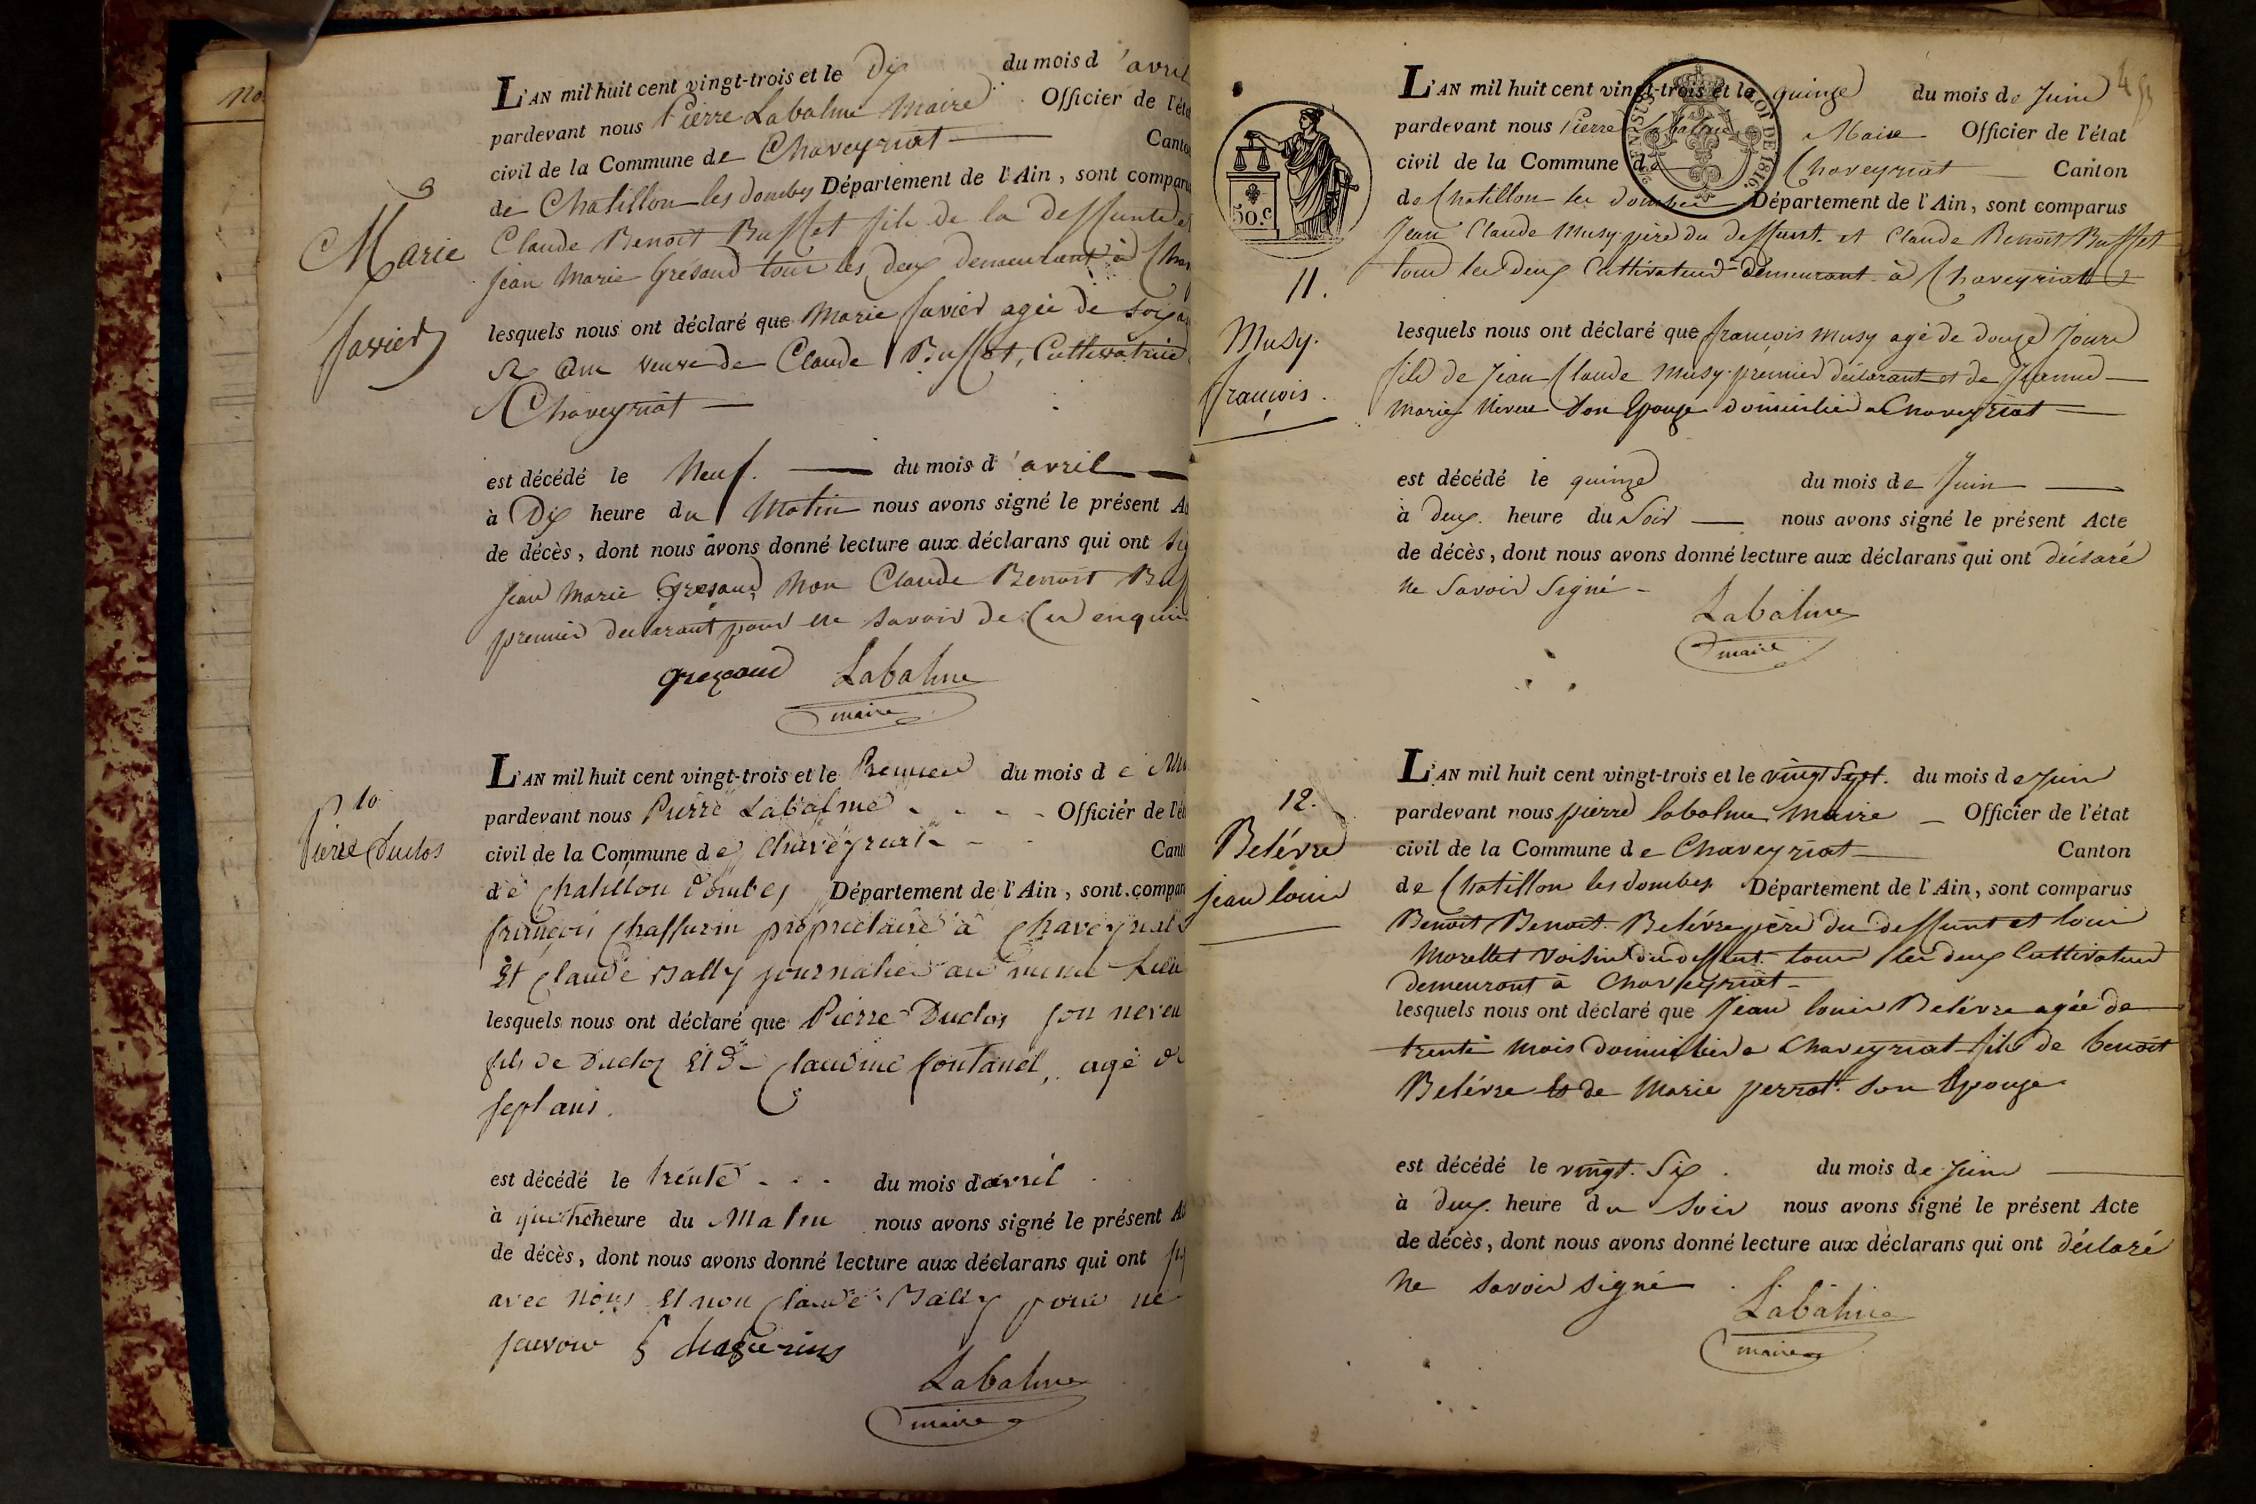 No
L'AN mil huit cent vingt-trois et le Dix du mois d'avril
pardevant nous Pierre Labalme Maire Officier de l'éta
civil de la Commune de Chaveyriat Canto
de Chatillon les dombes Département de l'Ain, sont comparu
Claude Benoit Buffet fils de la deffunte et
Jean Marie Grésaud tous les deux demeurant à Cha
lesquels nous ont déclaré que Marie Favier agée de
veuve de Claude Buffet, Cultivatrice
Chaveyriat
est décédé le Neuf. du mois d'avril
à Dix heure du Matin nous avons signé le présent Ac
de décès, dont nous avons donné lecture aux déclarans qui ont sig
Jean Marie Gresaud Non Claude Benoit Buf
premier declarant pour ne savoir de ce enquis
grezaud Labalme
maire
9
Marie
Favier
L'AN mil huit cent vingt-trois et le Premier du mois de Ma
pardevant nous Pierre Labalme Officier de l'ét
civil de la Commune de Chaveyriat Cant
de Chatillon Dombes Département de l'Ain, sont compar
françois Chaffurin propriétaire à Chaveyriat
Et Claude Bally journalier au meme Lieu
lesquels nous ont déclaré que Pierre Duclos son neveu
fils de Duclos Et De Claudine fontanel, agé de
sept ans.
est décédé le trente du mois d'avril
à quatre heure du Matin nous avons signé le présent Ac
de décès, dont nous avons donné lecture aux déclarans qui ont sig
avec nous Et non Claude Bally pour ne
savoir
Labalme
maire
10
Pierre Duclos
45
L'AN mil huit cent vingt-trois et le quinze du mois de Juin
pardevant nous Pierre Labalme Maire Officier de l'état
civil de la Commune de Chaveyriat Canton
de Chatillon les dombes Département de l'Ain, sont comparus
Jean Claude Musy père du deffunt et Claude Benoit Buffet
tous les deux Cultivateurs demeurant à Chaveyriat
lesquels nous ont déclaré que françois Musy agé de douze Jours
fils de Jean Claude Musy premier déclarant et de Jeanne
Marie son Epouse domicilié a Chaveyriat
est décédé le quinze du mois de Juin
à deux heure du Soir nous avons signé le présent Acte
de décès, dont nous avons donné lecture aux déclarans qui ont déclaré
ne Savoir Signé
Labalme
maire
50.C
LOI DE 1816.
11.
Musy.
françois.
L'AN mil huit cent vingt-trois et le vingt Sept. du mois de Juin
pardevant nous pierre Labalme Maire Officier de l'état
civil de la Commune de Chaveyriat Canton
de Chatillon les dombes Département de l'Ain, sont comparus
Benoit Benoit Belévre père du deffunt et Louis
Morellet Voisin du deffunt tous les deux Cultivateurs
demeurant à Chaveyriat
lesquels nous ont déclaré que Jean Louis Belévre agée de
trente Mois domicilié a Chaveyriat fils de benoit
Belévre Et de Marie perrot son Epouse
est décédé le vingt. Six. du mois de Juin
à deux. heure du Soir nous avons signé le présent Acte
de décès, dont nous avons donné lecture aux déclarans qui ont déclaré
ne savoir signé
Labalme
maire
12.
Belévre
jean louis